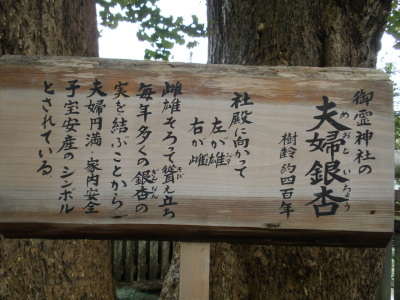 御霊神社の
夫婦銀杏
めおといちょう
樹齢約四百年
社殿に向かって
左が雄
お
右が雌
め
雌雄そろって聳え立ち
そび
毎年多くの銀杏の
ぎんなん
実を結ぶことから、
夫婦円満 家内安全
子宝安産のシンボル
とされている。